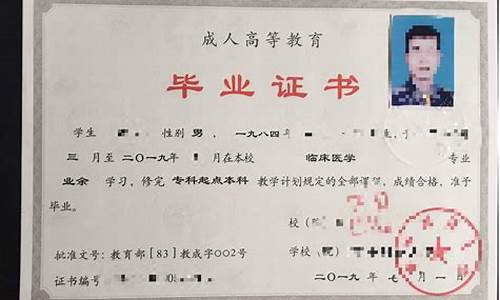 成人高等教育
毕业证书
学生 性别 男, 一九八四年
三 月至 二〇一九年 月在本校 临床医学 专业
业余 学习,修完 专科起点本科 教学计划规定的全部课程,成绩合格,准予
毕业。
校(院
批准文号:教育部[83]教成字002号 学校(院)
证书编号 二〇一九年 七月一日